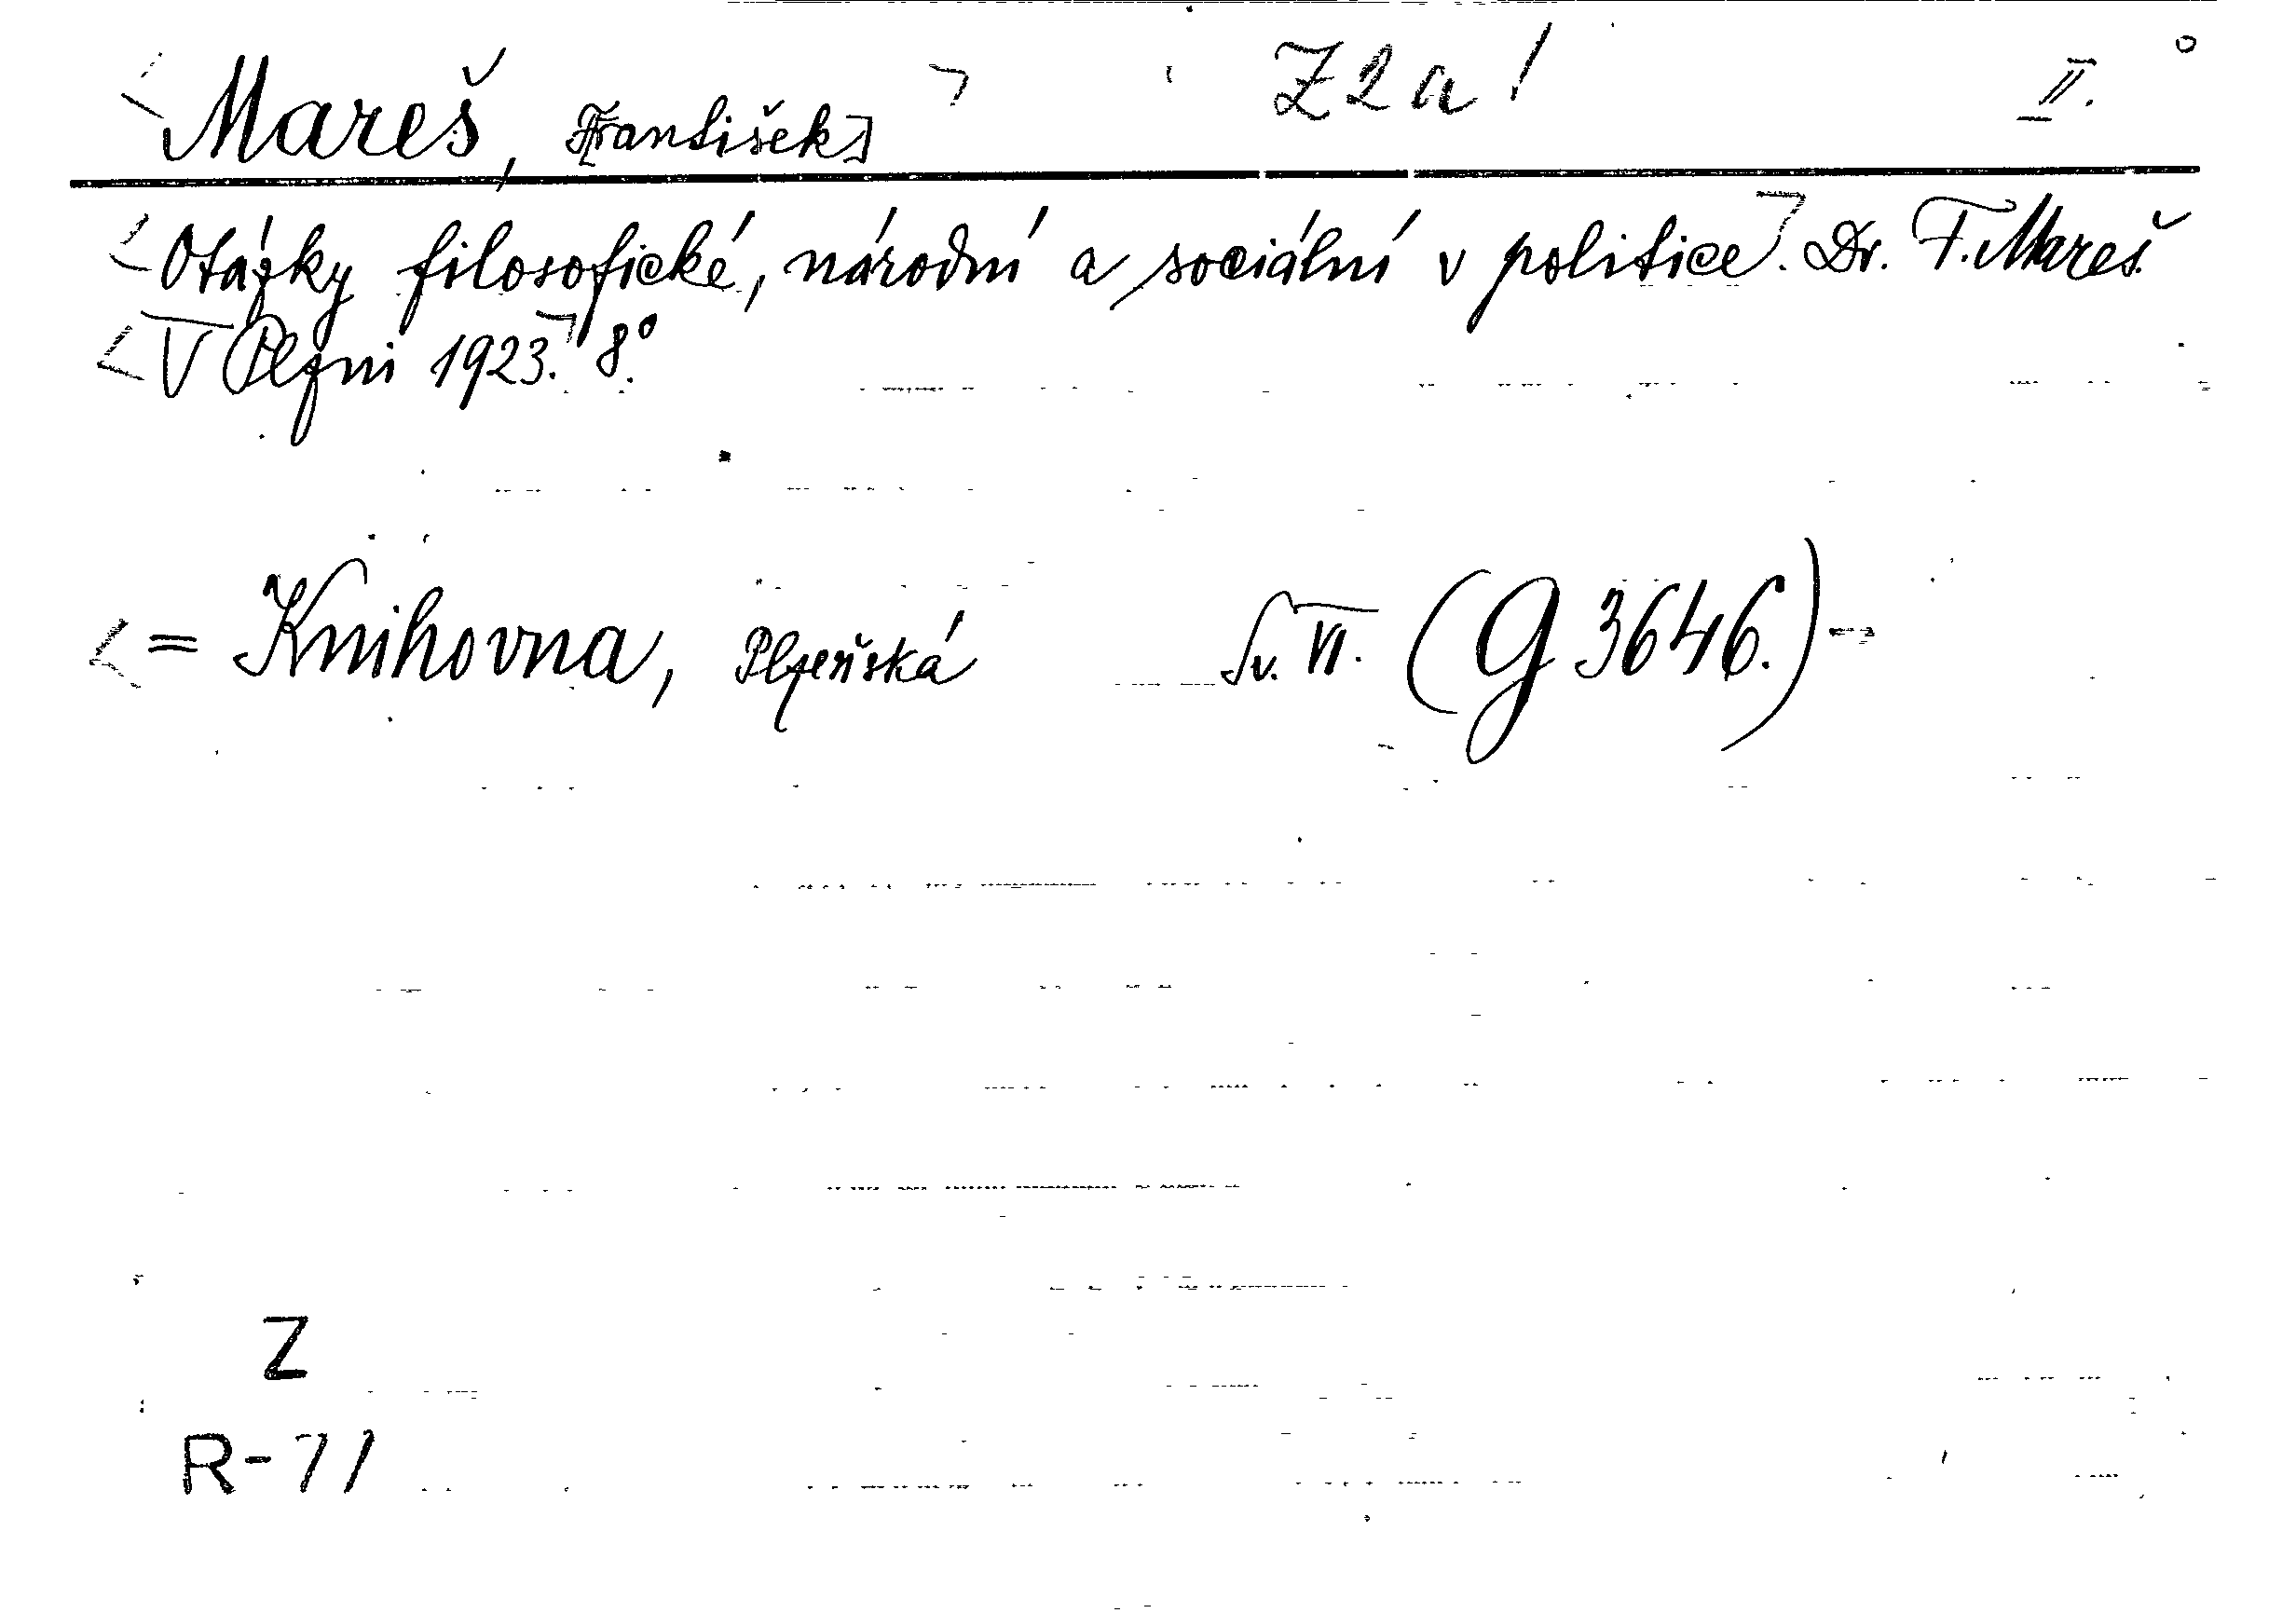 Mareš, František] Z2a/ II.
Otázky filosofické, národní a sociální v politice. Dr. F. Mareš
V Plzni 1923. 8°.
= Knihovna, Plzeňská Sv. VI. (G 3646.)
Z
R-71